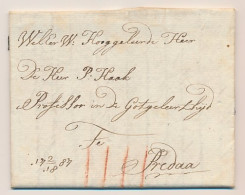 Weller W. Hooggeleerde Heer
De Heer P. Haak
Professor in de Gotgeleertheijd
Te
Bredaa
17 2/18 87